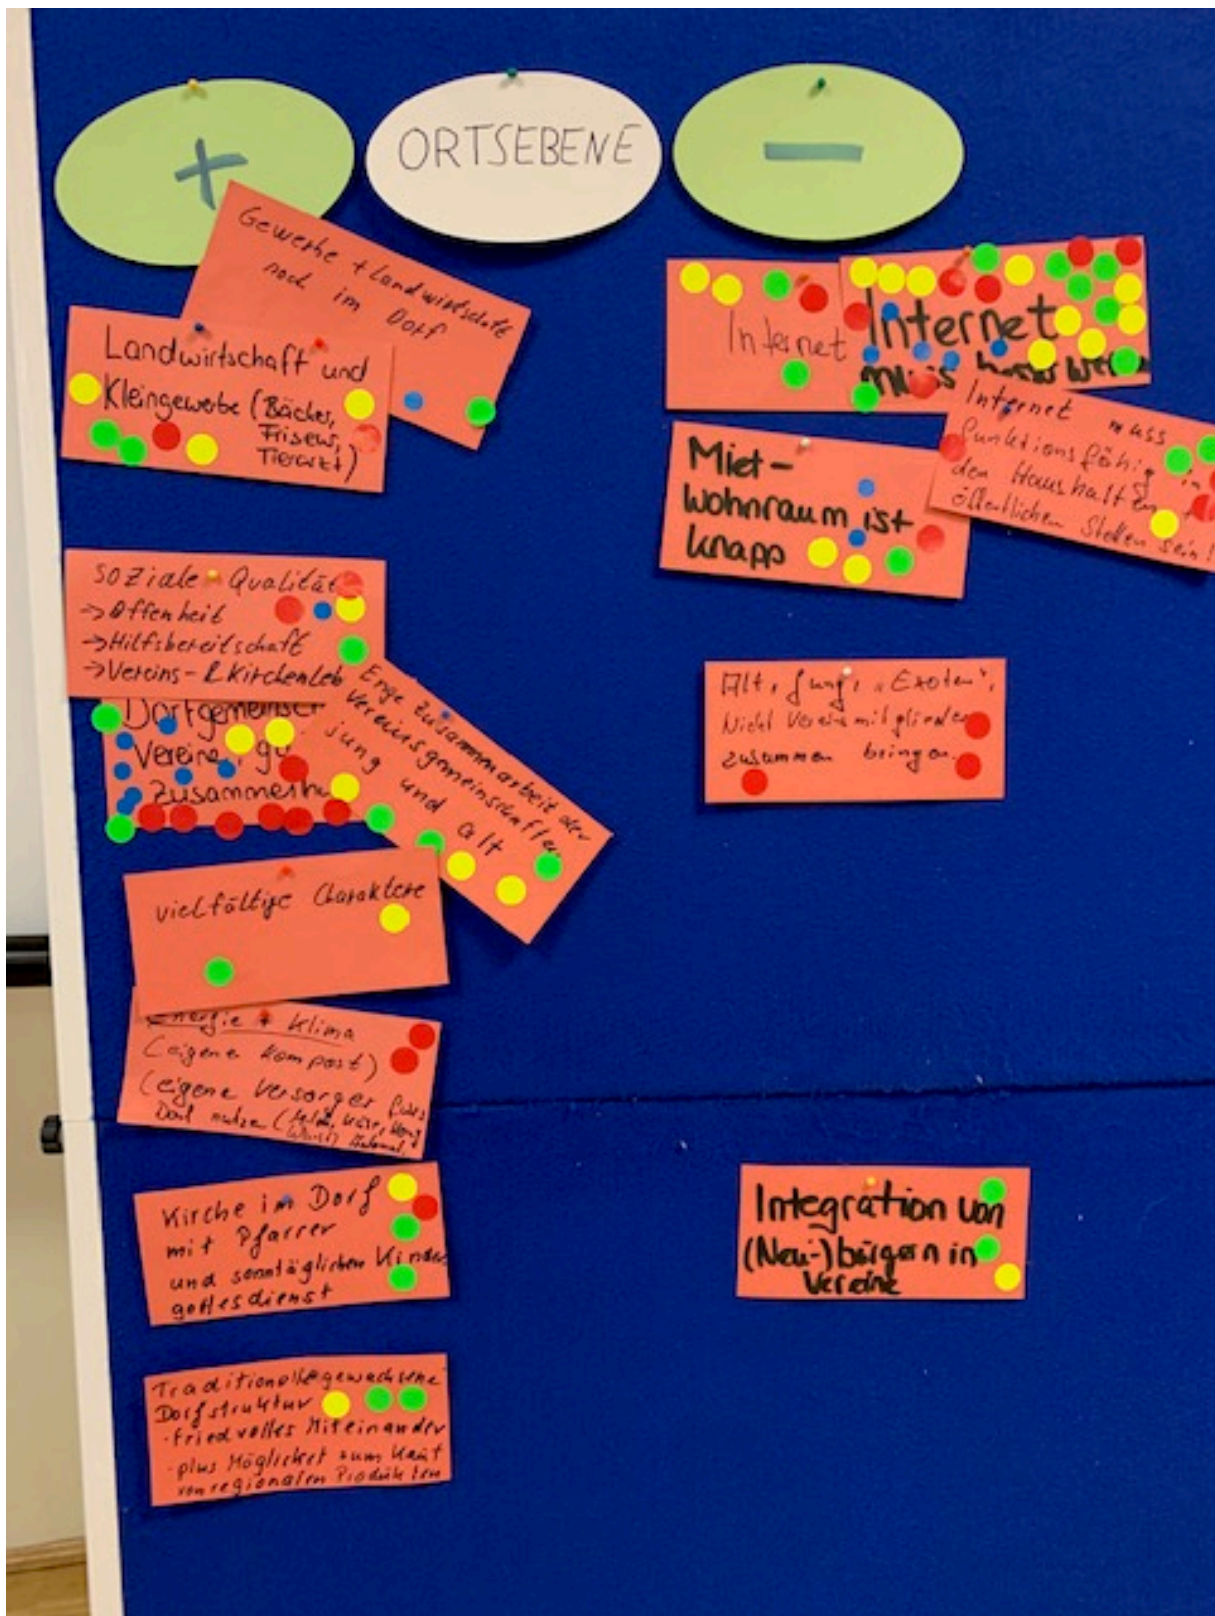 +
ORTSEBENE
-
Gewerbe + Landwirtschaft
noch im Dorf
Landwirtschaft und
Kleingewerbe (Bäcker,
Friseur,
Tierarzt)
soziale Qualität
→ Offenheit
→ Hilfsbereitschaft
→ Vereins- & Kirchenleb
Dorfgemeinsch
Vereine, gu
Zusammenha
Enge Zusammenarbeit der
Vereinsgemeinschaften
jung und alt
vielfältige Charaktere
Energie + Klima
(eigener Kompost)
(eigene Versorger fürs
Dorf nutzen
Kirche im Dorf
mit Pfarrer
und sonntäglichen Kinder
gottesdienst
Traditionelle gewachsene
Dorfstruktur
- friedvolles Miteinander
- plus Möglichkeit zum Kauf
von regionalen Produkten
Internet
Internet
muss besser werden
Internet muss
funktionsfähig in
den Haushalten +
öffentlichen Stellen sein!
Miet-
wohnraum ist
knapp
Alt, Jung, „Exoten",
Nicht Vereinsmitglieder
zusammen bringen.
Integration von
(Neu-)bürgern in
Vereine